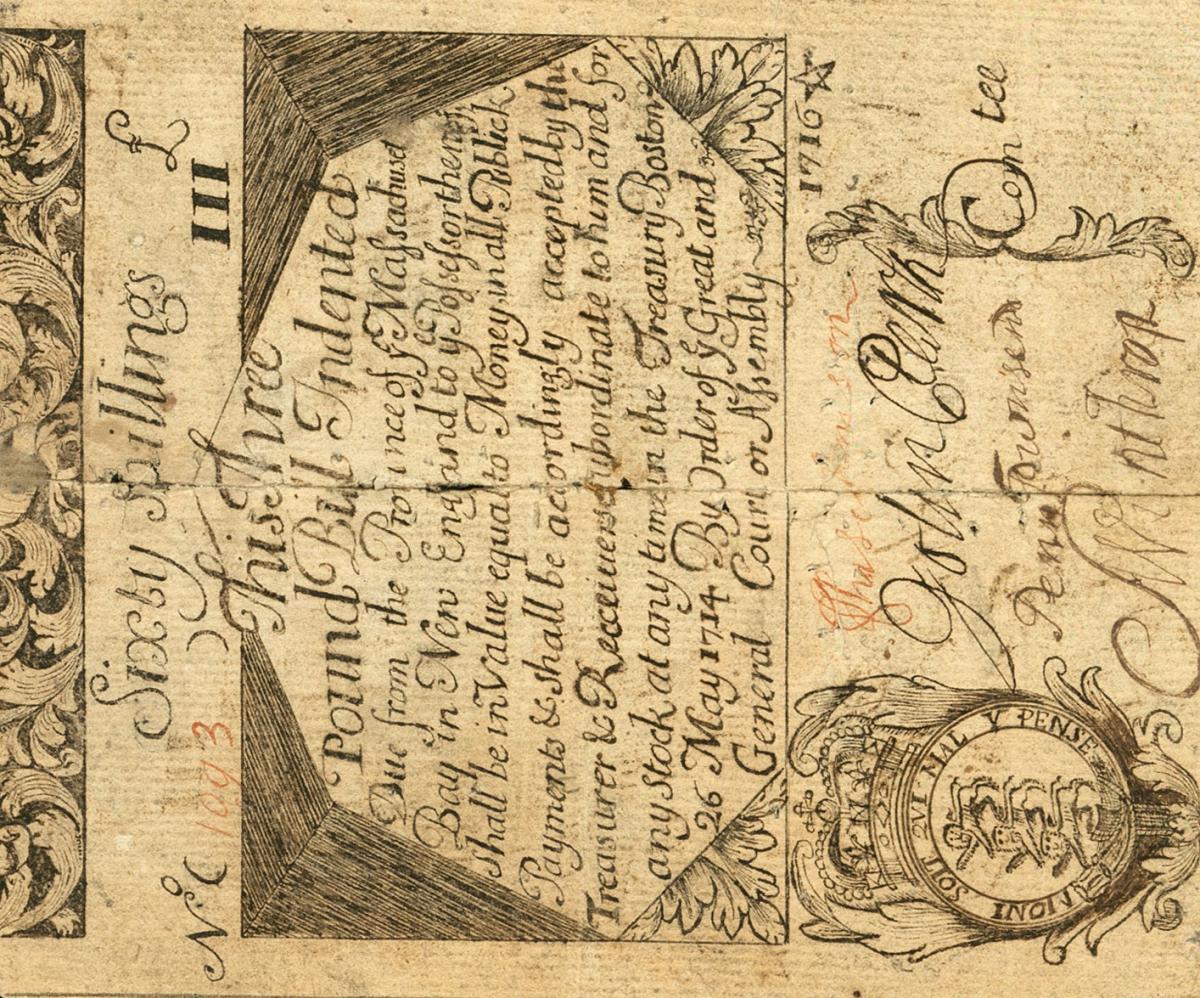 Sixty Shillings £
No ( 109 3 III
This Three
Pound Bill Indented
Due from the Province of ye Massachuset
Bay in New England to ye Possessor thereof
shall be in Value equal to Money in all Publick
Payments & shall be accordingly accepted by the
Treasurer & Receivers subordinate to him and for
any Stock at any time in the Treasury Boston
26 May 1714 By Order of ye Great and
General Court or Assembly
1716
John Clark
Penn Townsend Com tee
HONI SOIT QVI MAL Y PENSE